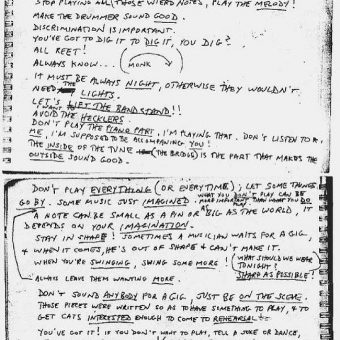 STOP PLAYING ALL THOSE WIERD NOTES, PLAY THE MELODY!
MAKE THE DRUMMER SOUND GOOD.
DISCRIMINATION IS IMPORTANT.
YOU'VE GOT TO DIG IT TO DIG IT, YOU DIG?
ALL REET!
ALWAYS KNOW... MONK
IT MUST BE ALWAYS NIGHT, OTHERWISE THEY WOULDN'T
NEED THE LIGHTS.
LET'S LIFT THE BAND STAND!!
I WANT TO AVOID THE HECKLERS.
DON'T PLAY THE PIANO PART, I'M PLAYING THAT. DON'T LISTEN TO
ME, I'M SUPPOSED TO BE ACCOMPANYING YOU!
THE INSIDE OF THE TUNE (THE BRIDGE) IS THE PART THAT MAKES THE
OUTSIDE SOUND GOOD.
DON'T PLAY EVERYTHING (OR EVERYTIME); LET SOME THINGS
GO BY. SOME MUSIC JUST IMAGINED. WHAT YOU DON'T PLAY CAN BE
MORE IMPORTANT THAN WHAT YOU DO
A NOTE CAN BE SMALL AS A PIN OR AS BIG AS THE WORLD, IT
DEPENDS ON YOUR IMAGINATION.
STAY IN SHAPE! SOMETIMES A MUSICIAN WAITS FOR A GIG,
& WHEN IT COMES, HE'S OUT OF SHAPE & CAN'T MAKE IT.
WHEN YOU'RE SWINGING, SWING SOME MORE!
WHAT SHOULD WE WEAR
TONIGHT?
SHARP AS POSSIBLE!
ALWAYS LEAVE THEM WANTING MORE.
DON'T SOUND ANYBODY FOR A GIG, JUST BE ON THE SCENE.
THOSE PIECES WERE WRITTEN SO AS TO HAVE SOMETHING TO PLAY, &
TO GET CATS INTERESTED ENOUGH TO COME TO REHEARSAL.
YOU'VE GOT IT! IF YOU DON'T WANT TO PLAY, TELL A JOKE OR DANCE,